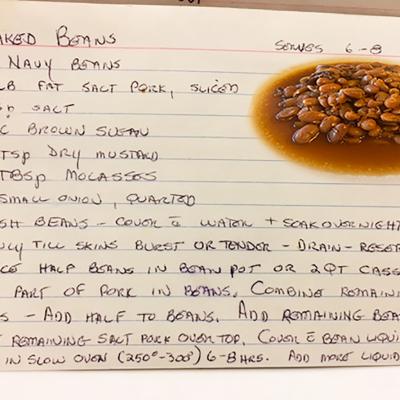 AKED BEANS SERVES 6-8
NAVY BEANS
LB FAT SALT PORK, SLICED
SP SALT
C BROWN SUGAR
TSP DRY MUSTARD
TBSP MOLASSES
SMALL ONION, QUARTED
SH BEANS - COVER c̄ WATER + SOAK OVERNIGHT
TILL SKINS BURST OR TENDER - DRAIN - RESER
CE HALF BEANS IN BEAN POT OR 2QT CASS
PART OF PORK IN BEANS. COMBINE REMAININ
S - ADD HALF TO BEANS. ADD REMAINING BEA
REMAINING SALT PORK OVER TOP. COVER c̄ BEAN LIQUI
IN SLOW OVEN (250°-300°) 6-8 HRS. ADD MORE LIQUID